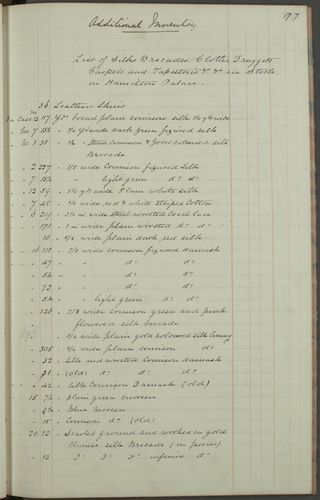 177
Additional Inventory
List of Silks Brocades. Cloths Druggets
Carpets and Tapestries &c &c in Stock
in Hamilton Palace.
36 Leather Skins
In Case 12 117 Yds broad plain crimson silk wide
7 158 - wide dark green figured silk
1 31 - Stout crimson & gold coloured silk
Brocade
2 227 - 7/8 wide Crimson figured Silk
- - light green do do
12 59 - wide Plain white silk
7 45 - wide red & white striped Cotton
6 219 - in wide stout worsted Coach lace
171 - 1 in wide plain worsted do do
10 - wide plain dark red silk
16 102 - 7/8 wide crimson figured damask
- 47 - do do
- 54 - " do do
- 72 - do do
- 54 - " light green do do
- 126 - 7/8 wide crimson green and pink
flowered silk brocade
- wide plain gold coloured silk lining
- 305 - wide plain crimson do
- 32 - Silk and worsted Crimson damask
- 91 - (old) do do do
- 42 - Silk Crimson Damask (old)
15 72 - plain green moreen
- Blue moreen
- 18 - Crimson do (old)
20 22 - Scarlet ground and worked in gold
Chinese silk Brocade (in pieces)
- 13 Do Do Do inferior do